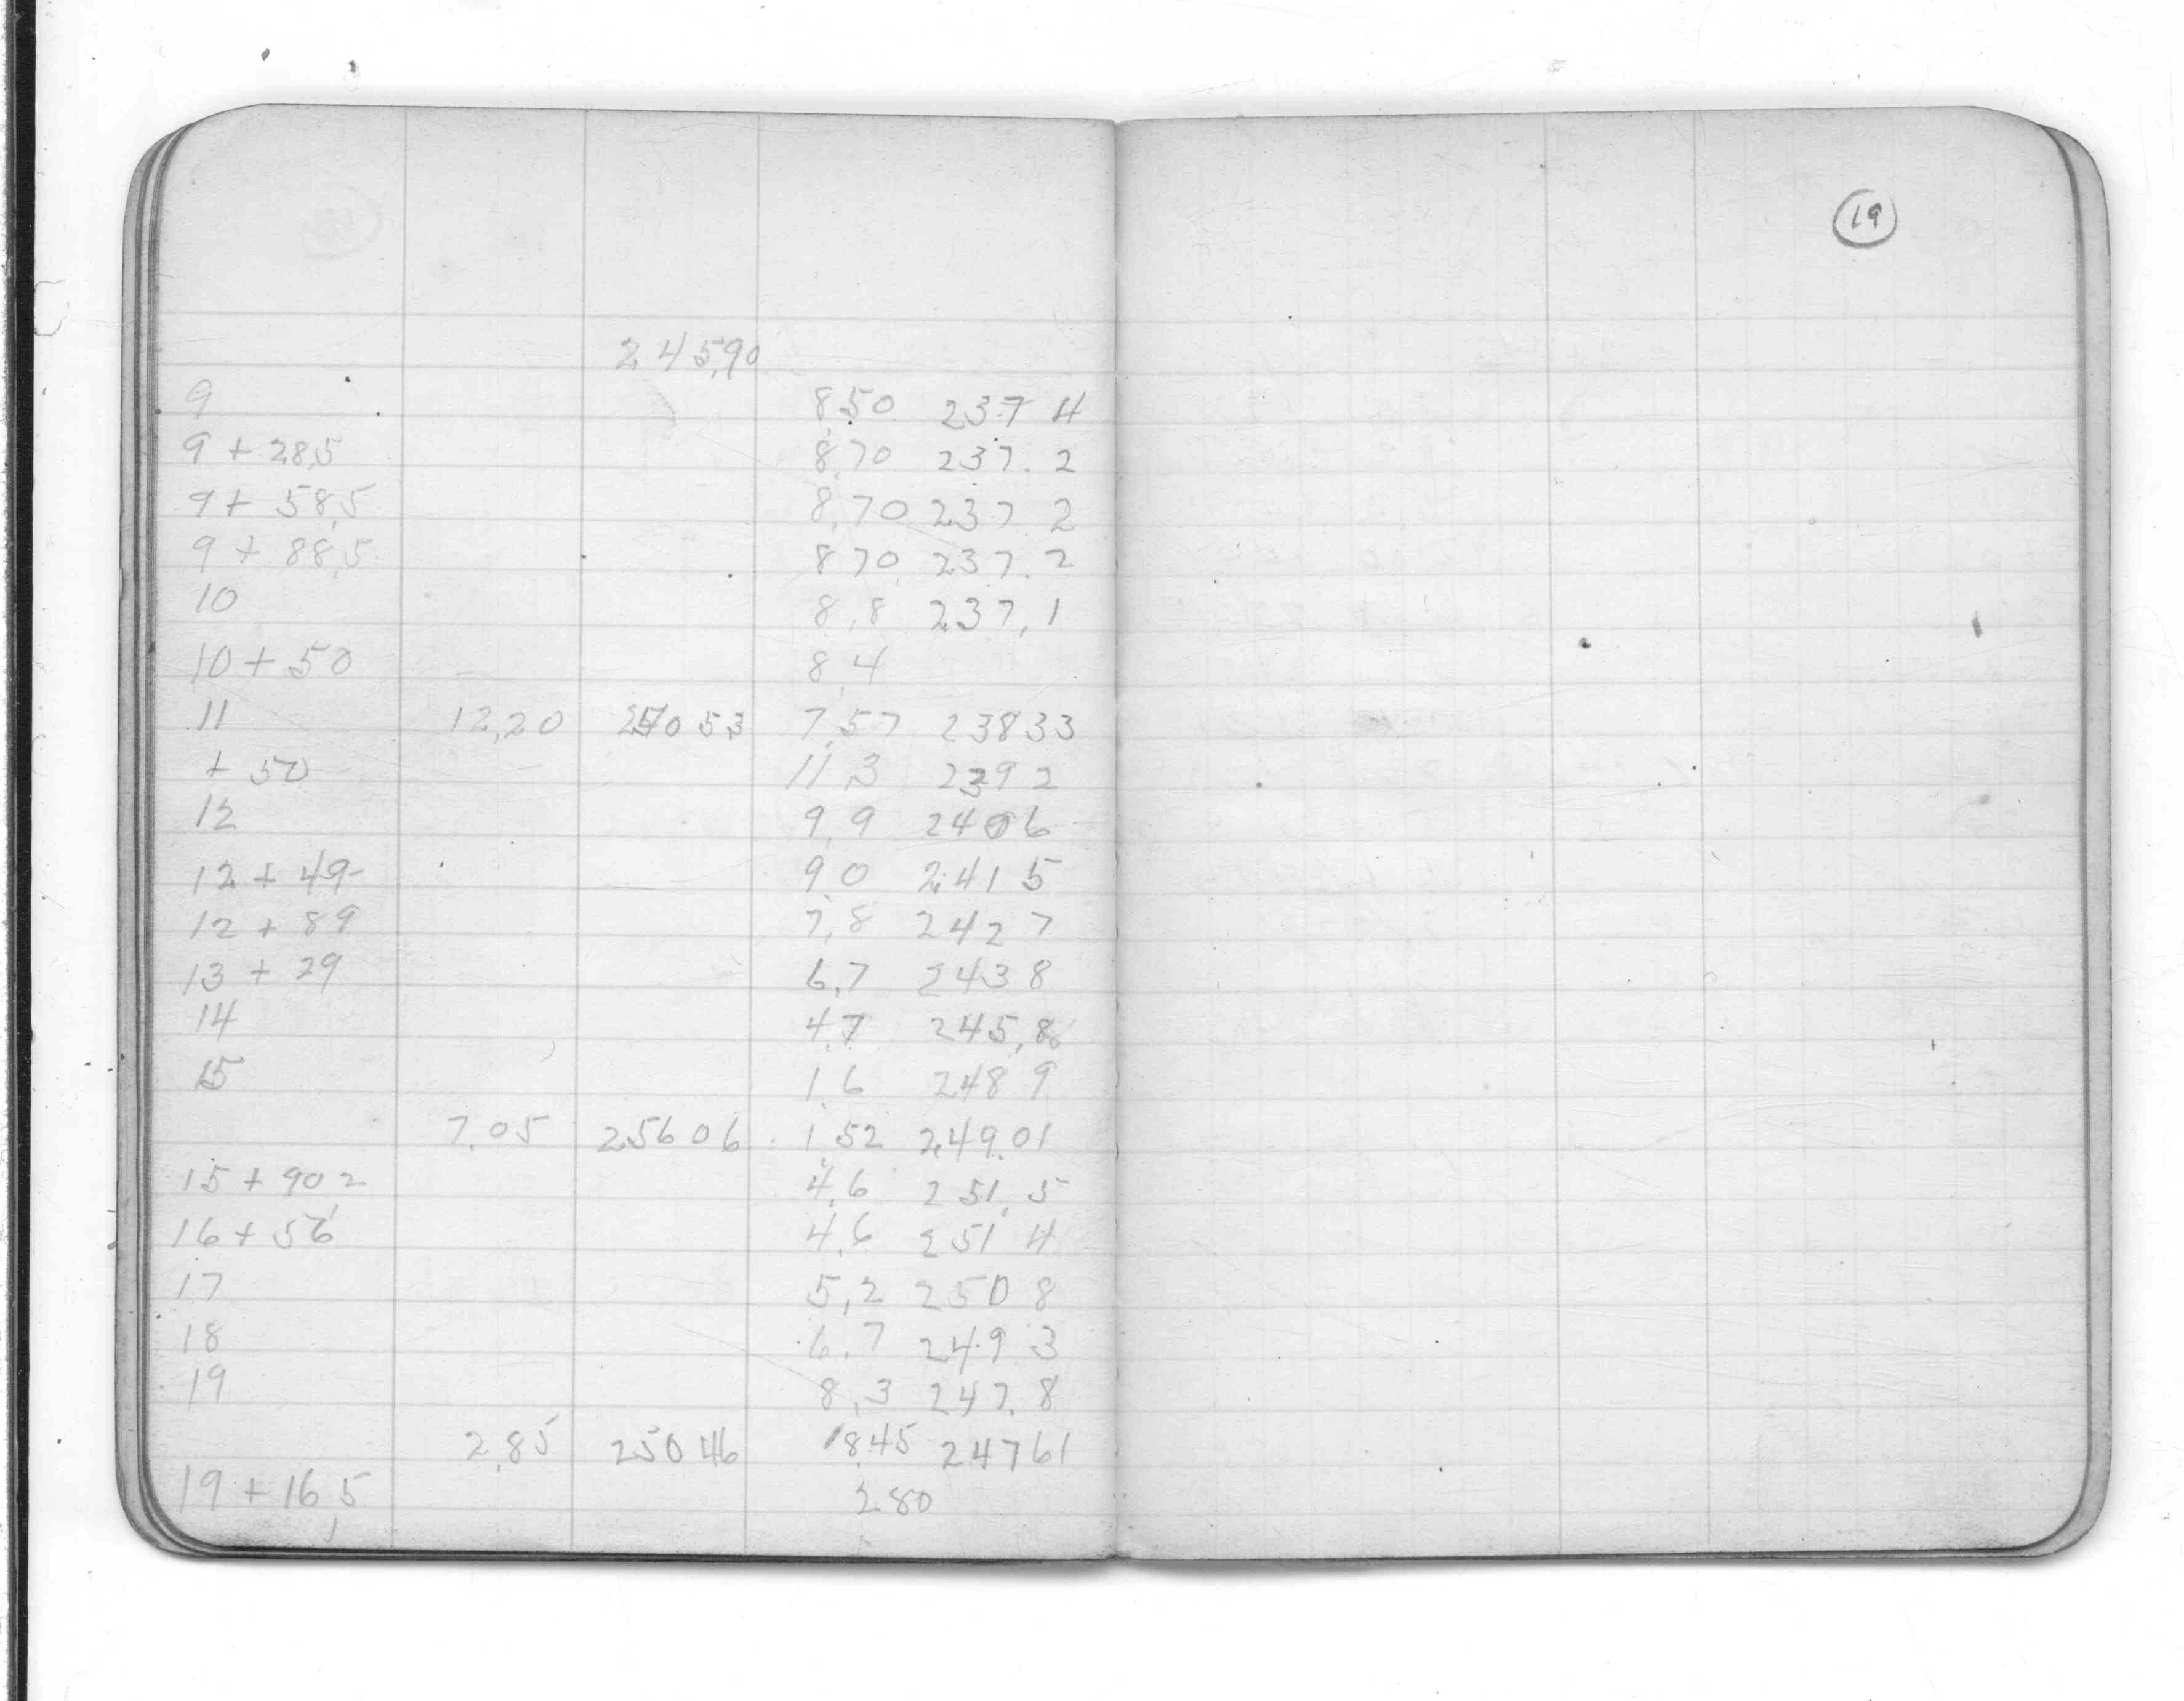 245,90
9 8,50 237 4
9 + 28,5 8,70 237. 2
9 + 58,5 8,70 237 2
9 + 88,5 8 70 237. 2
10 8,8 237,1
10 + 50 8,4
11 12,20 250 53 7,57 238 33
+ 50 11,3 239 2
12 9,9 240 6
12 + 49 9,0 241 5
12 + 89 7,8 242 7
13 + 29 6,7 243 8
14 4,7 245,8
15 1,6 248 9
7,05 256 06 1,52 249.01
15 + 90,2 4,6 251,5
16 + 56 4,6 251 4
17 5,2 250 8
18 6,7 249 3
19 8,3 247. 8
2,85 250 46 8,45 247 61
19 + 16,5 2 80
19